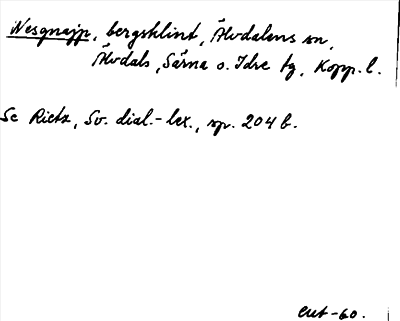 Wesgnajp, bergsklint, Älvdalens sn,
Älvdals, Särna o. Idre tg, Kopp. l.
Se Rietz, Sv. dial.-lex., sp. 204 b.
-60.